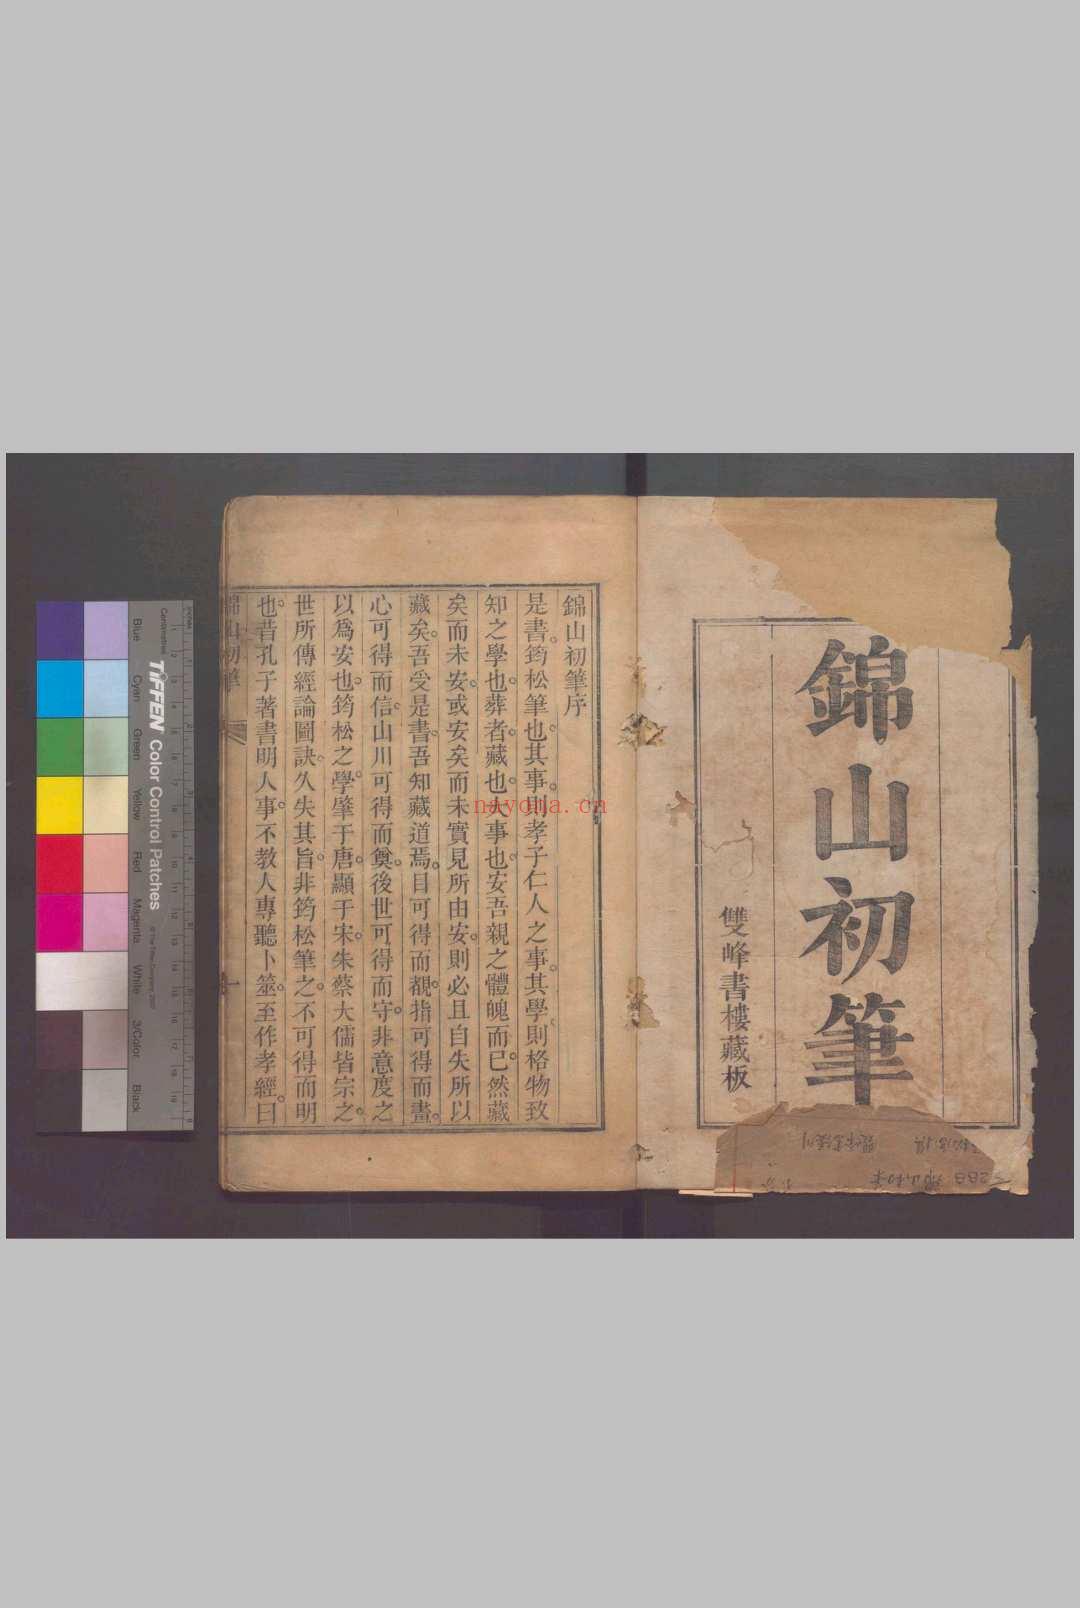 錦山初筆
雙峰書樓藏板
錦山初筆序
是書。筠松筆也。其事。則孝子仁人之事。其學。則格物致
知之學也。葬者。藏也。大事也。安吾親之體魄而已。然藏
矣而未安。或安矣而未實見所由安。則必且自失所以
藏矣。吾受是書。吾知藏道焉。目可得而覩。指可得而畫。
心可得而信。山川可得而奠。後世可得而守。非意度之
以為安也。筠松之學。肇于唐。顯于宋。朱蔡大儒皆宗之。
世所傳經論圖訣。久失其旨。非筠松筆之。不可得而明
也。昔孔子著書明人事。不教人專聽卜筮。至作孝經。曰
錦山初筆
一
nayona.cn
TIFFEN Color Control Patches
© The Tiffen Company, 2007
Centimetres
Inches
Blue
Cyan
Green
Yellow
Red
Magenta
White
3/Color
Black